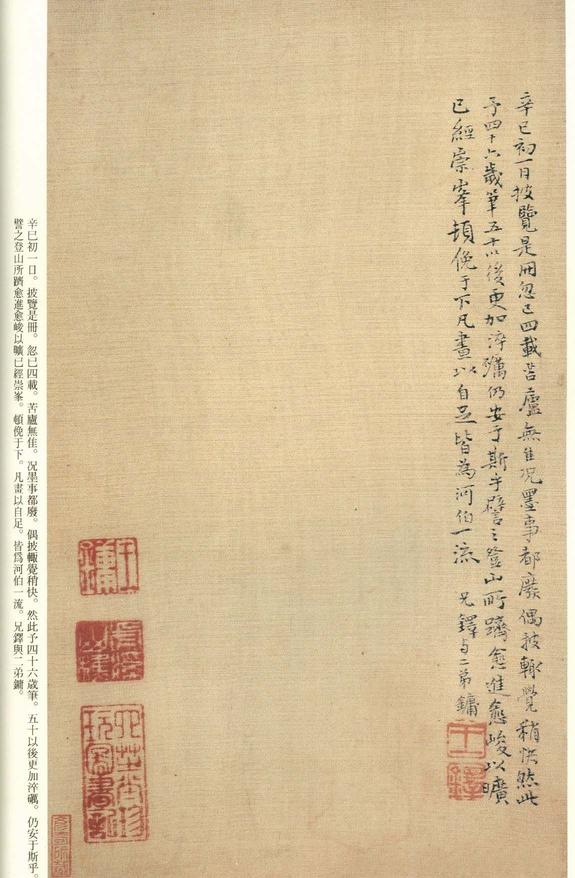 辛巳初一日披覽是冊忽已四載苦廬無隹况墨事都廢偶披輙覺稍快然此
予四十六歲筆五十以後更加淬礪仍安于斯乎譬之登山所躋愈進愈峻以曠
已經崇峯頓俛于下凡畫以自足皆為河伯一流 兄鐸與二弟鏞
王鐸
王鏞
辛巳初一日。披覽是冊。忽已四載。苦廬無隹。况墨事都廢。偶披輙覺稍快。然此予四十六歲筆。五十以後更加淬礪。仍安于斯乎。
譬之登山所躋愈進愈峻以曠已經崇峯。頓俛于下。凡畫以自足。皆爲河伯一流。兄鐸與二弟鏞。